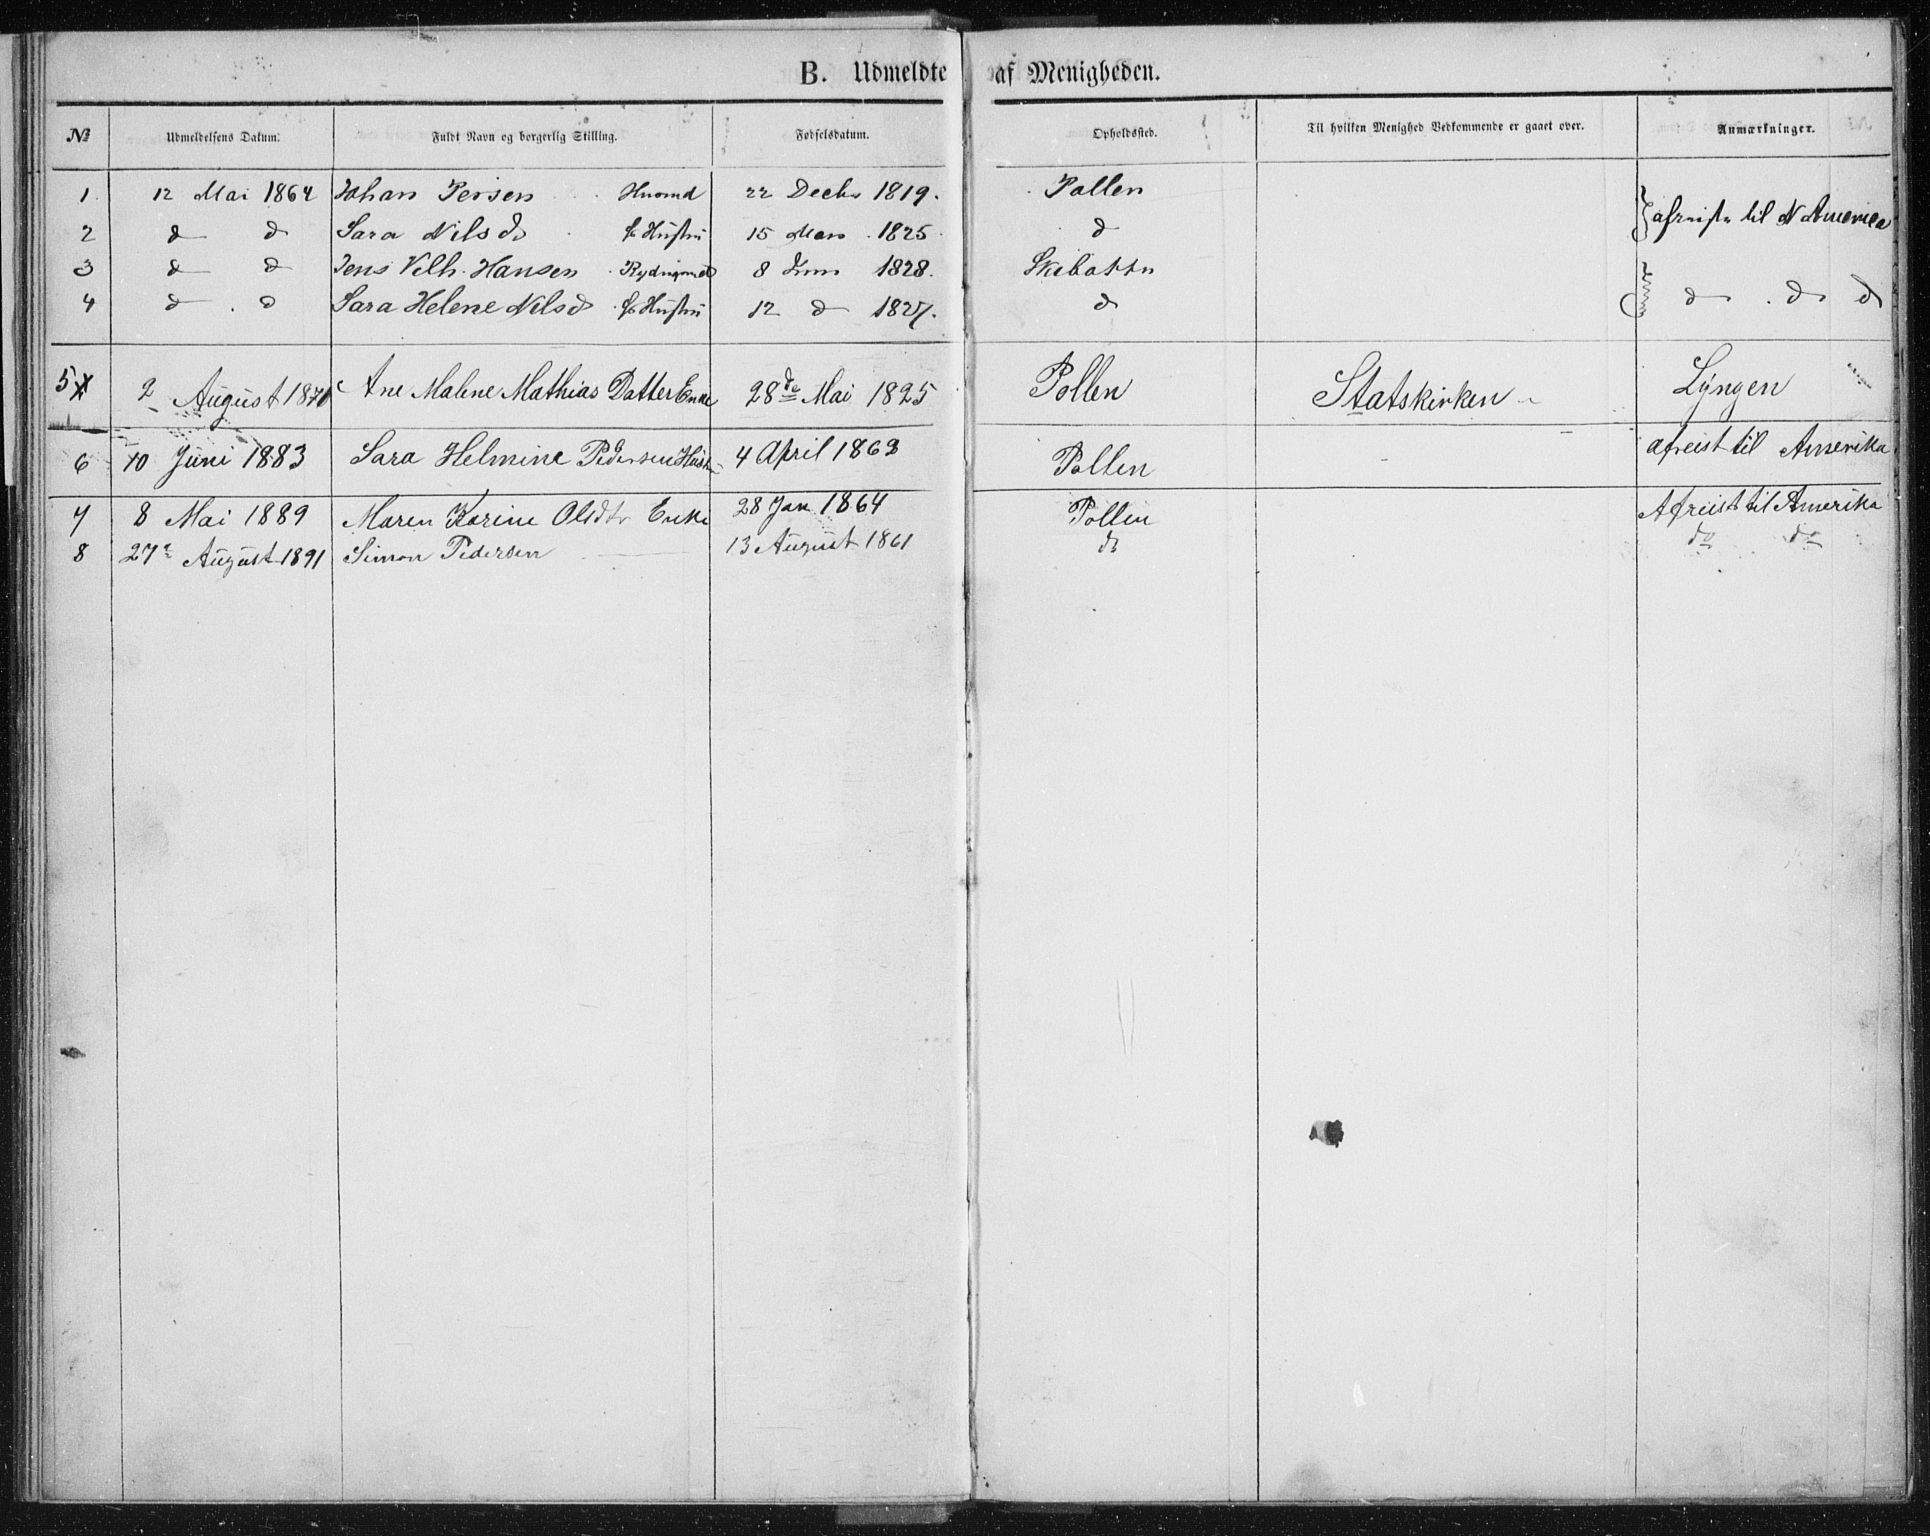 B. Udmeldte af Menigheden.
№ Udmeldelsens Datum. Fuldt Navn og borgerlig Stilling. Fødselsdatum. Opholdssted. Til hvilken Menighed Vedkommende er gaaet over. Anmærkninger.
1 12 Mai 1864 Johan Persen 22 Decbr 1819. Pollen } afreiste til N America
2 d d Sara Nilsd Hustru 15 Mars 1825. d
3 d d Jens Vilh. Hansen 8 Juni 1828. Skibotten } d d d
4 d d Sara Helene Nilsd Hustru 12 d 1827. d
5 2 August 1870 Ane Malene Mathias Datter Enke 28de Mai 1825 Pollen Statskirken Lyngen
6 10 Juni 1883 Sara Helmine Pedersen Hustru 4 April 1863 Pollen afreist til Amerika
7 8 Mai 1889 Maren Karine Olsdtr Enke 28 Jan 1864 Pollen Afreist til Amerika
8 27 August 1891 Simon Pedersen 13 August 1861 do do do